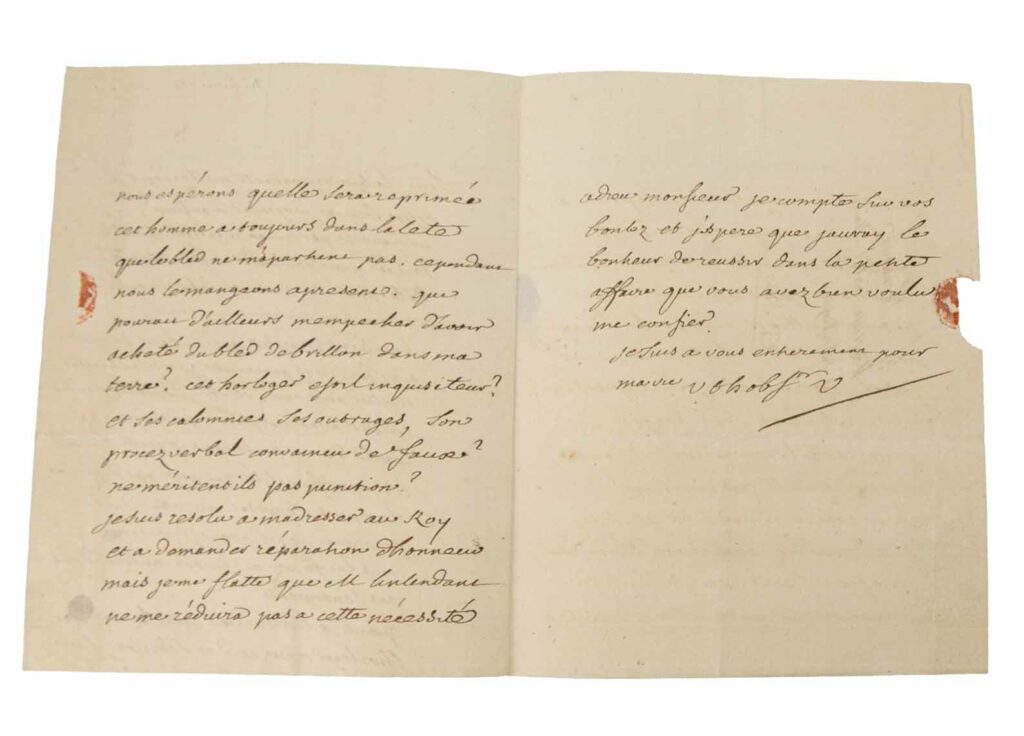 nous espérons quelle sera reprimée
cet homme a toujours dans la tete
que le bled ne m'apartient pas. cependant
nous le mangeons apresent. que
pourait d'ailleurs m'empecher d'avoir
acheté du bled de brillon dans ma
terre? cet horloger est il inquisiteur?
et ses calomnies ses outrages, son
procez verbal convaincu de faux?
ne méritent ils pas punition?
je suis resolu a m'adresser au Roy
et a demander réparation d'honneur
mais je me flatte que M l'intendant
ne me réduira pas a cette nécessité
adieu monsieur je compte sur vos
bontez et j'espere que jauray le
bonheur de reussir dans la petite
affaire que vous avez bien voulu
me confier.
je suis a vous entierement pour
ma vie v t h obsr V